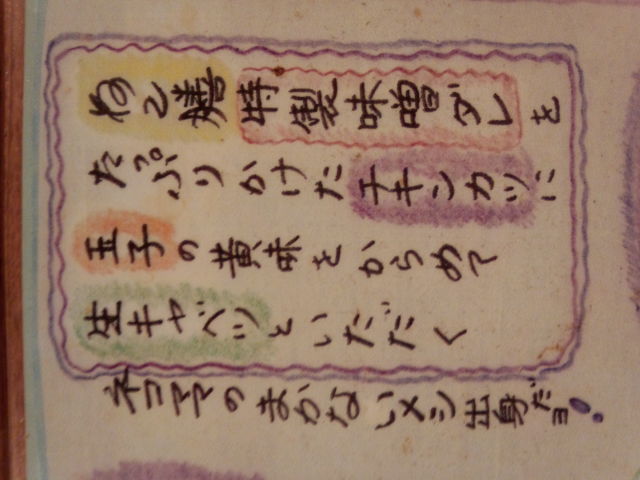 ねこ膳特製味噌ダレを
たっぷりかけたチキンカツに
玉子の黄味をからめて
生キャベツといただく
ネコママのまかないメシ出身だョ!